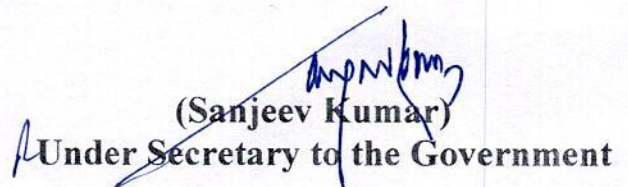 (Sanjeev Kumar)
Under Secretary to the Government